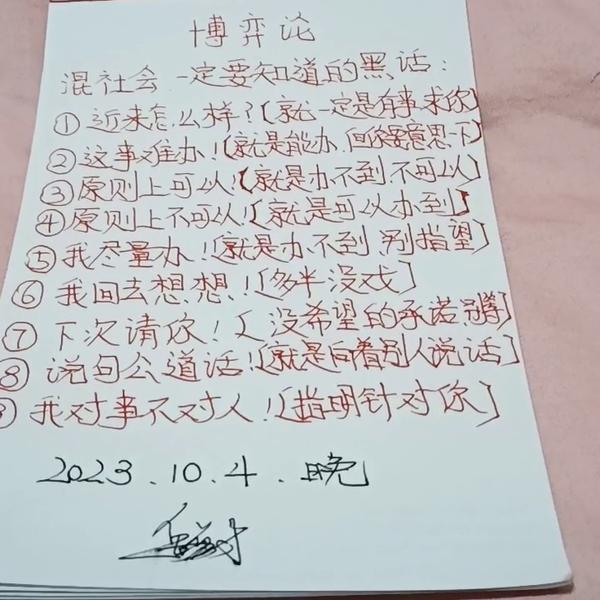 博弈论
混社会一定要知道的黑话:
① 近来怎么样?〔就一定是有事求你〕
② 这事难办!〔就是能办,但你要意思一下〕
③ 原则上可以!〔就是办不到,不可以〕
④ 原则上不可以!〔就是可以办到〕
⑤ 我尽量办!〔就是办不到,别指望〕
⑥ 我回去想想!〔多半没戏〕
⑦ 下次请你!〔没希望的承诺,别等〕
⑧ 说句公道话!〔就是向着别人说话〕
⑨ 我对事不对人!〔指明针对你〕
2023.10.4.晚